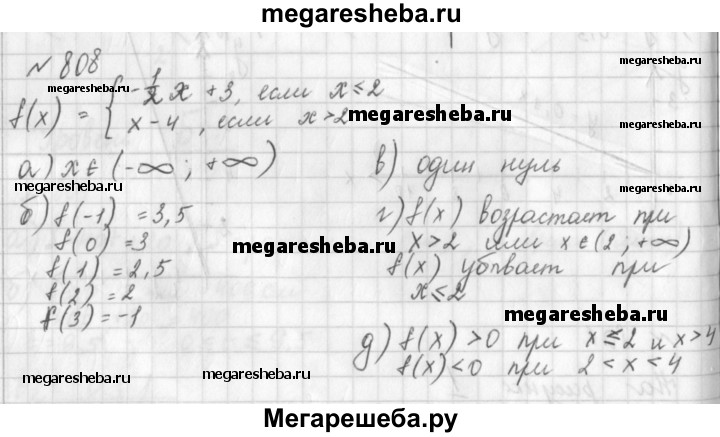 megaresheba.ru
№ 808
megaresheba.ru
megaresheba.ru
f(x) = { -1/2 x + 3, если x ≤ 2
x - 4, если x > 2
megaresheba.ru
megaresheba.ru
а) x ∈ (-∞; +∞)
megaresheba.ru
б) f(-1) = 3,5
f(0) = 3
f(1) = 2,5
f(2) = 2
f(3) = -1
в) один нуль
г) f(x) возрастает при
x > 2 или x ∈ (2; +∞)
f(x) убывает при
x ≤ 2
megaresheba.ru
megaresheba.ru
megaresheba.ru
megaresheba.ru
д) f(x) > 0 при x ≤ 2 и x > 4
f(x) < 0 при 2 < x < 4
megaresheba.ru
megaresheba.ru
Мегарешеба.ру